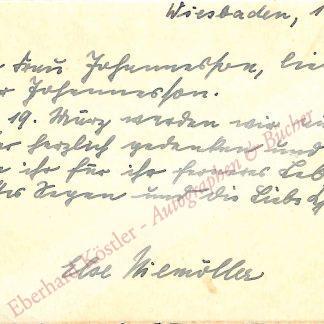 Wiesbaden, 1
Frau Johannesson, lie
r Johannesson.
19. März werden wir
er herzlich gedenken und
e ihr für ihr ferneres Leb
tes Segen und die Liebe
Else Niemöller
Eberhard Köstler - Autographen & Bücher